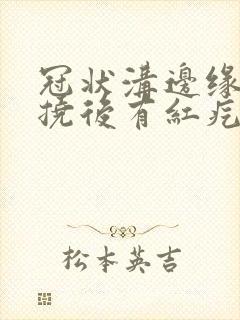 冠状溝邊缘
撓後有紅疙
松本英吉